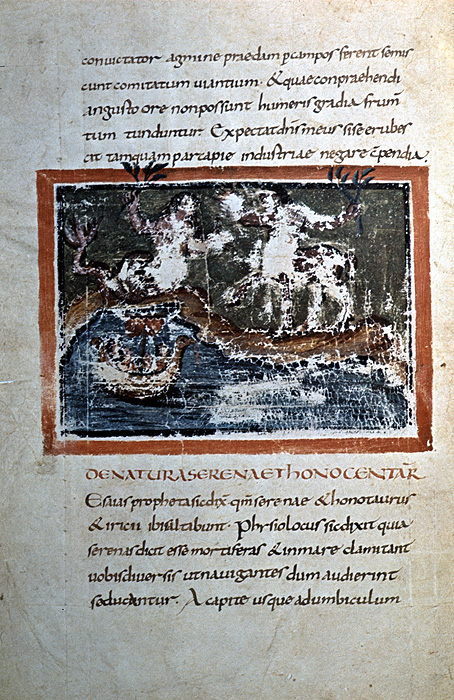 conuictator agmine praedam p campos ferent semis
cunt comitatum uiantium · & quae conpraehendi
angusto ore non possunt humeris gradia frum̄
tum tunduntur Expectat dn̄s meus si se erubes
cit tamquam par tapie industriae negare c̄pendia,
DE NATURA SERENAE ET HONOCENTAR̄
Esaias propheta sic dix̄ qm̄ serenae & honotaurus
& iricii ibi saltabunt · Phisiolocus sic dixit quia
serenas dicit esse mortiferas & in mare clamitant
uobis diuersis ut nauigantes dum audierint
seducantur. A capite usque ad umbiculum